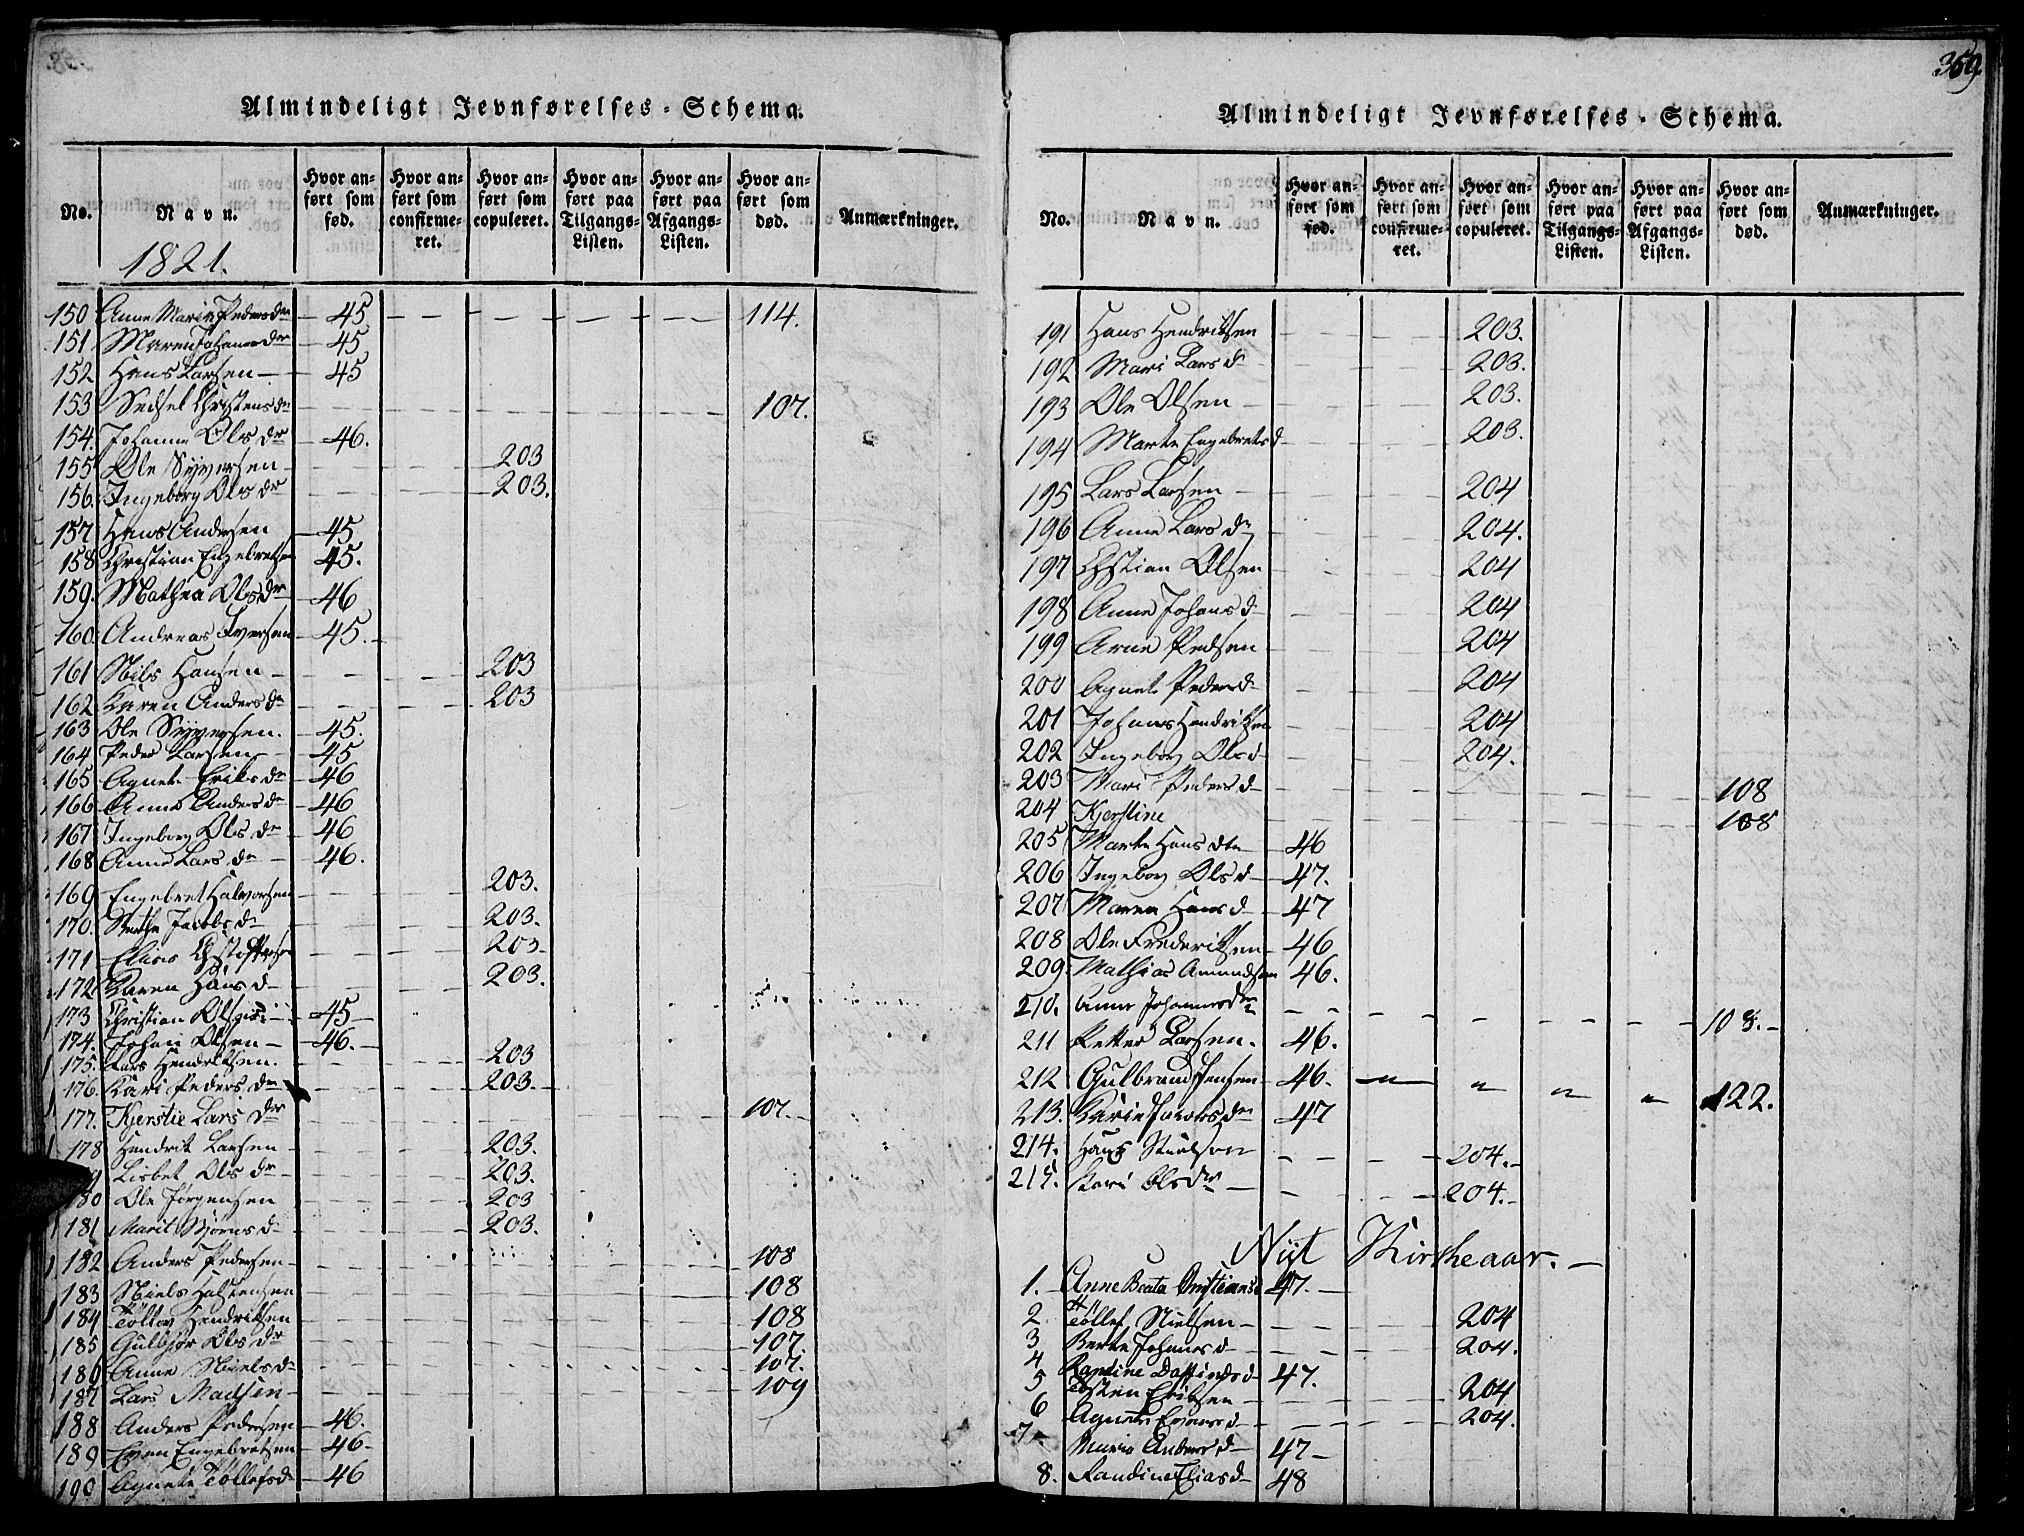 Almindeligt Jevnførelses-Schema.
No. Navn. Hvor anført som fød. Hvor anført som confirmeret. Hvor anført som copuleret. Hvor anført paa Tilgangs-Listen. Hvor anført paa Afgangs-Listen. Hvor anført som død. Anmærkninger.
1821.
150 Anne Marie Pedersdr 45 114.
151 Maren Johannesdr 45
152 Hans Larsen 45
153 Sedsel Christensdr 107.
154. Johanne Olsdr 46.
155 Ole Syversen 203
156. Ingeborg Olsdr 203.
157 Hans Andersen 45
158 Christian Engebretsen 45.
159. Mathea Olsdr 46
160. Andreas Iversen 45.
161 Nils Hansen 203
162 Karen Andersdr 203
163 Ole Syversen. 45.
164 Peder Larsen 45
165 Agnete Eriksdr 46
166 Anne Andersdr 46
167 Ingeborg Olsdr 46
168 Anne Larsdr 46.
169 Engebret Halvorsen 203.
170. Jacobsd 203.
171 Elias 203.
172 Karen Hansd 203.
173 Christian Olsen 45
174. Johan Olsen 46.
175. Lars Hendriksen. 203
176. Kari Pedersdr 203.
177. Kjerstie Larsdr 107.
178 Hendrik Larsen 203.
Lisbet Olsdr 203.
180 Ole Jørgensen 203
181 Marit Bjørnsd 203.
182 Anders Pedersen 108
183 Niels Halstensen 108
184 Tollev Hendriksen 108
185 Gulbjør Olsdr 107.
186 Anne Nielsd 107.
187 Lars Madsen 109
188 Anders Pedersen 46.
189 Even Engebretsen 46
190 Agnete Tollefsd 46
369
Almindeligt Jevnførelses-Schema.
No. Navn. Hvor anført som fød. Hvor anført som confirmeret. Hvor anført som copuleret. Hvor anført paa Tilgangs-Listen. Hvor anført paa Afgangs-Listen. Hvor anført som død. Anmærkninger.
191 Hans Hendriksen 203.
192 Mari Larsd 203.
193 Ole Olsen 203.
194 Marte Engebretsd 203.
195 Lars Larsen 204
196 Anne Larsd 204.
197 Chstian Olsen 204
198 Anne Johansd 204
199 Arne Pedsen 204
200 Agnete Pedersd 204
201 Johannes Hendriksen 204
202 Ingebor Olsd 204.
203 Mari Pedersd 108
204 Kjerstine 108
205 Marte Hansdtr 46
206 Ingebor Olsd 47.
207 Maren Hansd 47
208 Ole Fredriksen 46
209 Mathias Amundsen 46.
210. Anne Johannesdr 108.
211 Petter Larsen. 46.
212 Gulbrand Jensen 46. 122.
213. Karie Jacobsdr 47
214. Hans 204.
215. Kari Olsdr 204.
Nyt Kirkeaar.
1. Anne Beata Christiansd 47.
2 Tollef Nielsen 204
3 Berte Johansd 204.
4 Randine Daffindsd 47.
5 Tosten Eriksen 204
6 Agnete 204.
7. Maria Andersd 47
8. Randine Eliasd 48